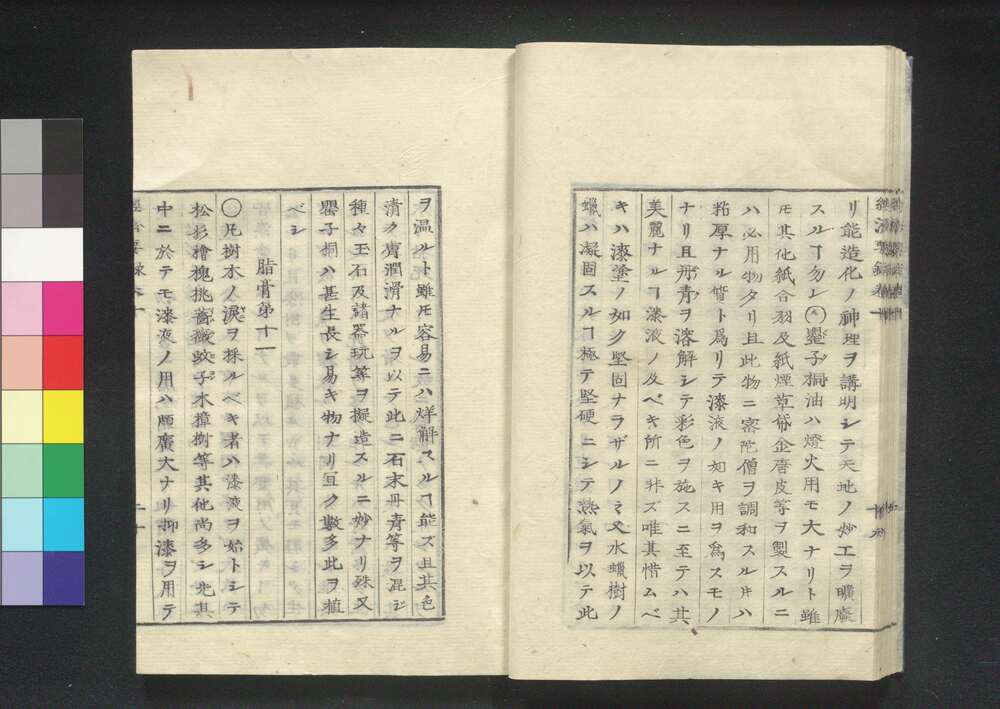 リ能造化ノ神理ヲ講明シテ天地ノ妙工ヲ曠廢
スルヿ勿レ㊅罌子桐油ハ燈火用モ大ナリト雖
𪜈其化紙合羽及紙煙草帒企唐皮等ヲ製スルニ
ハ必用物タリ且此物ニ密陀僧ヲ調和スル𪜈ハ
粘厚ナル膏ト爲リテ漆液ノ如キ用ヲ爲スモノ
ナリ且丹青ヲ溶解シテ彩色ヲ施スニ至テハ其
美麗ナルヿ漆液ノ及ベキ所ニ非ズ唯其惜ムベ
キハ漆塗ノ如ク堅固ナラザルノミ又水蠟樹ノ
蠟ハ凝固スルヿ極テ堅硬ニシテ熱氣ヲ以テ此
ヲ温ルト雖𪜈容易ニハ烊解スルヿ能ズ且其色
清ク膚潤滑ナルヲ以テ此ニ石末丹青等ヲ混ジ
種々玉石及諸器玩等ヲ擬造スルニ妙ナリ殊又
罌子桐ハ甚生長シ易キ物ナリ宜ク數多此ヲ植
ベシ
脂膏第十一
〇凡樹木ノ涙ヲ採ルベキ者ハ漆液ヲ始トシテ
松杉檜槐桃薔薇蚊子木樟樹等其他尚多シ光其
中ニ於テモ漆液ノ用ハ頗廣大ナリ抑漆ヲ用テ